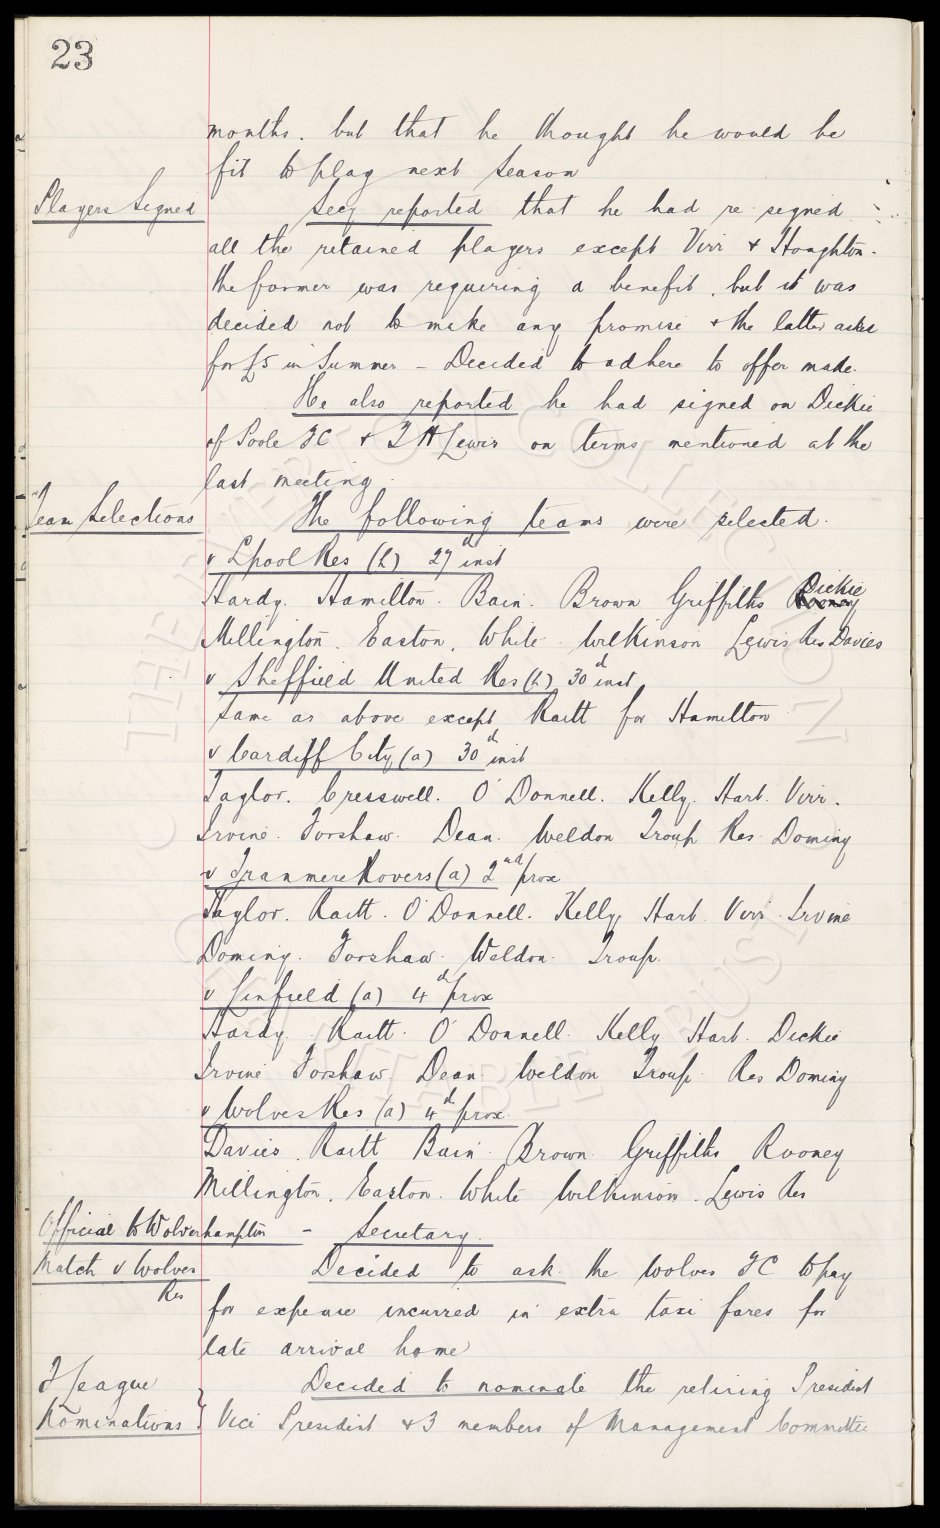 23
months. but that he thought he would be
fit to play next season
Players Signed
Secy reported that he had re signed
all the retained players except Virr & Houghton.
the former was requering a benefit. but it was
decided not to make any promise & the latter asked
for £5 in Summer – Decided to adhere to offer made.
He also reported he had signed on Dickie
of Poole FC & T H Lewis on terms mentioned at the
last meeting.
Team Selections
The following teams were selected.
v Lpool Res (h) 27th inst
Hardy. Hamilton. Bain. Brown Griffiths Rooney Dickie
Millington. Easton. White. Wilkinson Lewis Res Davies
v Sheffield United Res (h) 30th inst
Same as above except Raitt for Hamilton
v Cardiff City (a) 30th inst
Taylor. Cresswell. O'Donnell. Kelly. Hart. Virr.
Irvine. Forshaw. Dean. Weldon Troup Res Doming
v Tranmere Rovers (a) 2nd prox
Taylor. Raitt. O'Donnell. Kelly Hart Virr. Irvine
Doming. Forshaw. Weldon. Troup.
v Linfield (a) 4th prox
Hardy. Raitt. O'Donnell. Kelly Hart. Dickie
Irvine Forshaw. Dean Weldon Troup. Res Doming
v Wolves Res (a) 4th prox.
Davies. Raitt Bain. Brown Griffiths Rooney
Millington. Easton. White Wilkinson. Lewis Res
Official to Wolverhampton – Secretary.
Match v Wolves
Res
Decided to ask the Wolves FC to pay
for expense incurred in extra taxi fares for
late arrival home
F League
Nominations }
Decided to nominate the retiring President
Vice President & 3 members of Management Committee
THE EVERTON COLLECTION
CHARITABLE TRUST